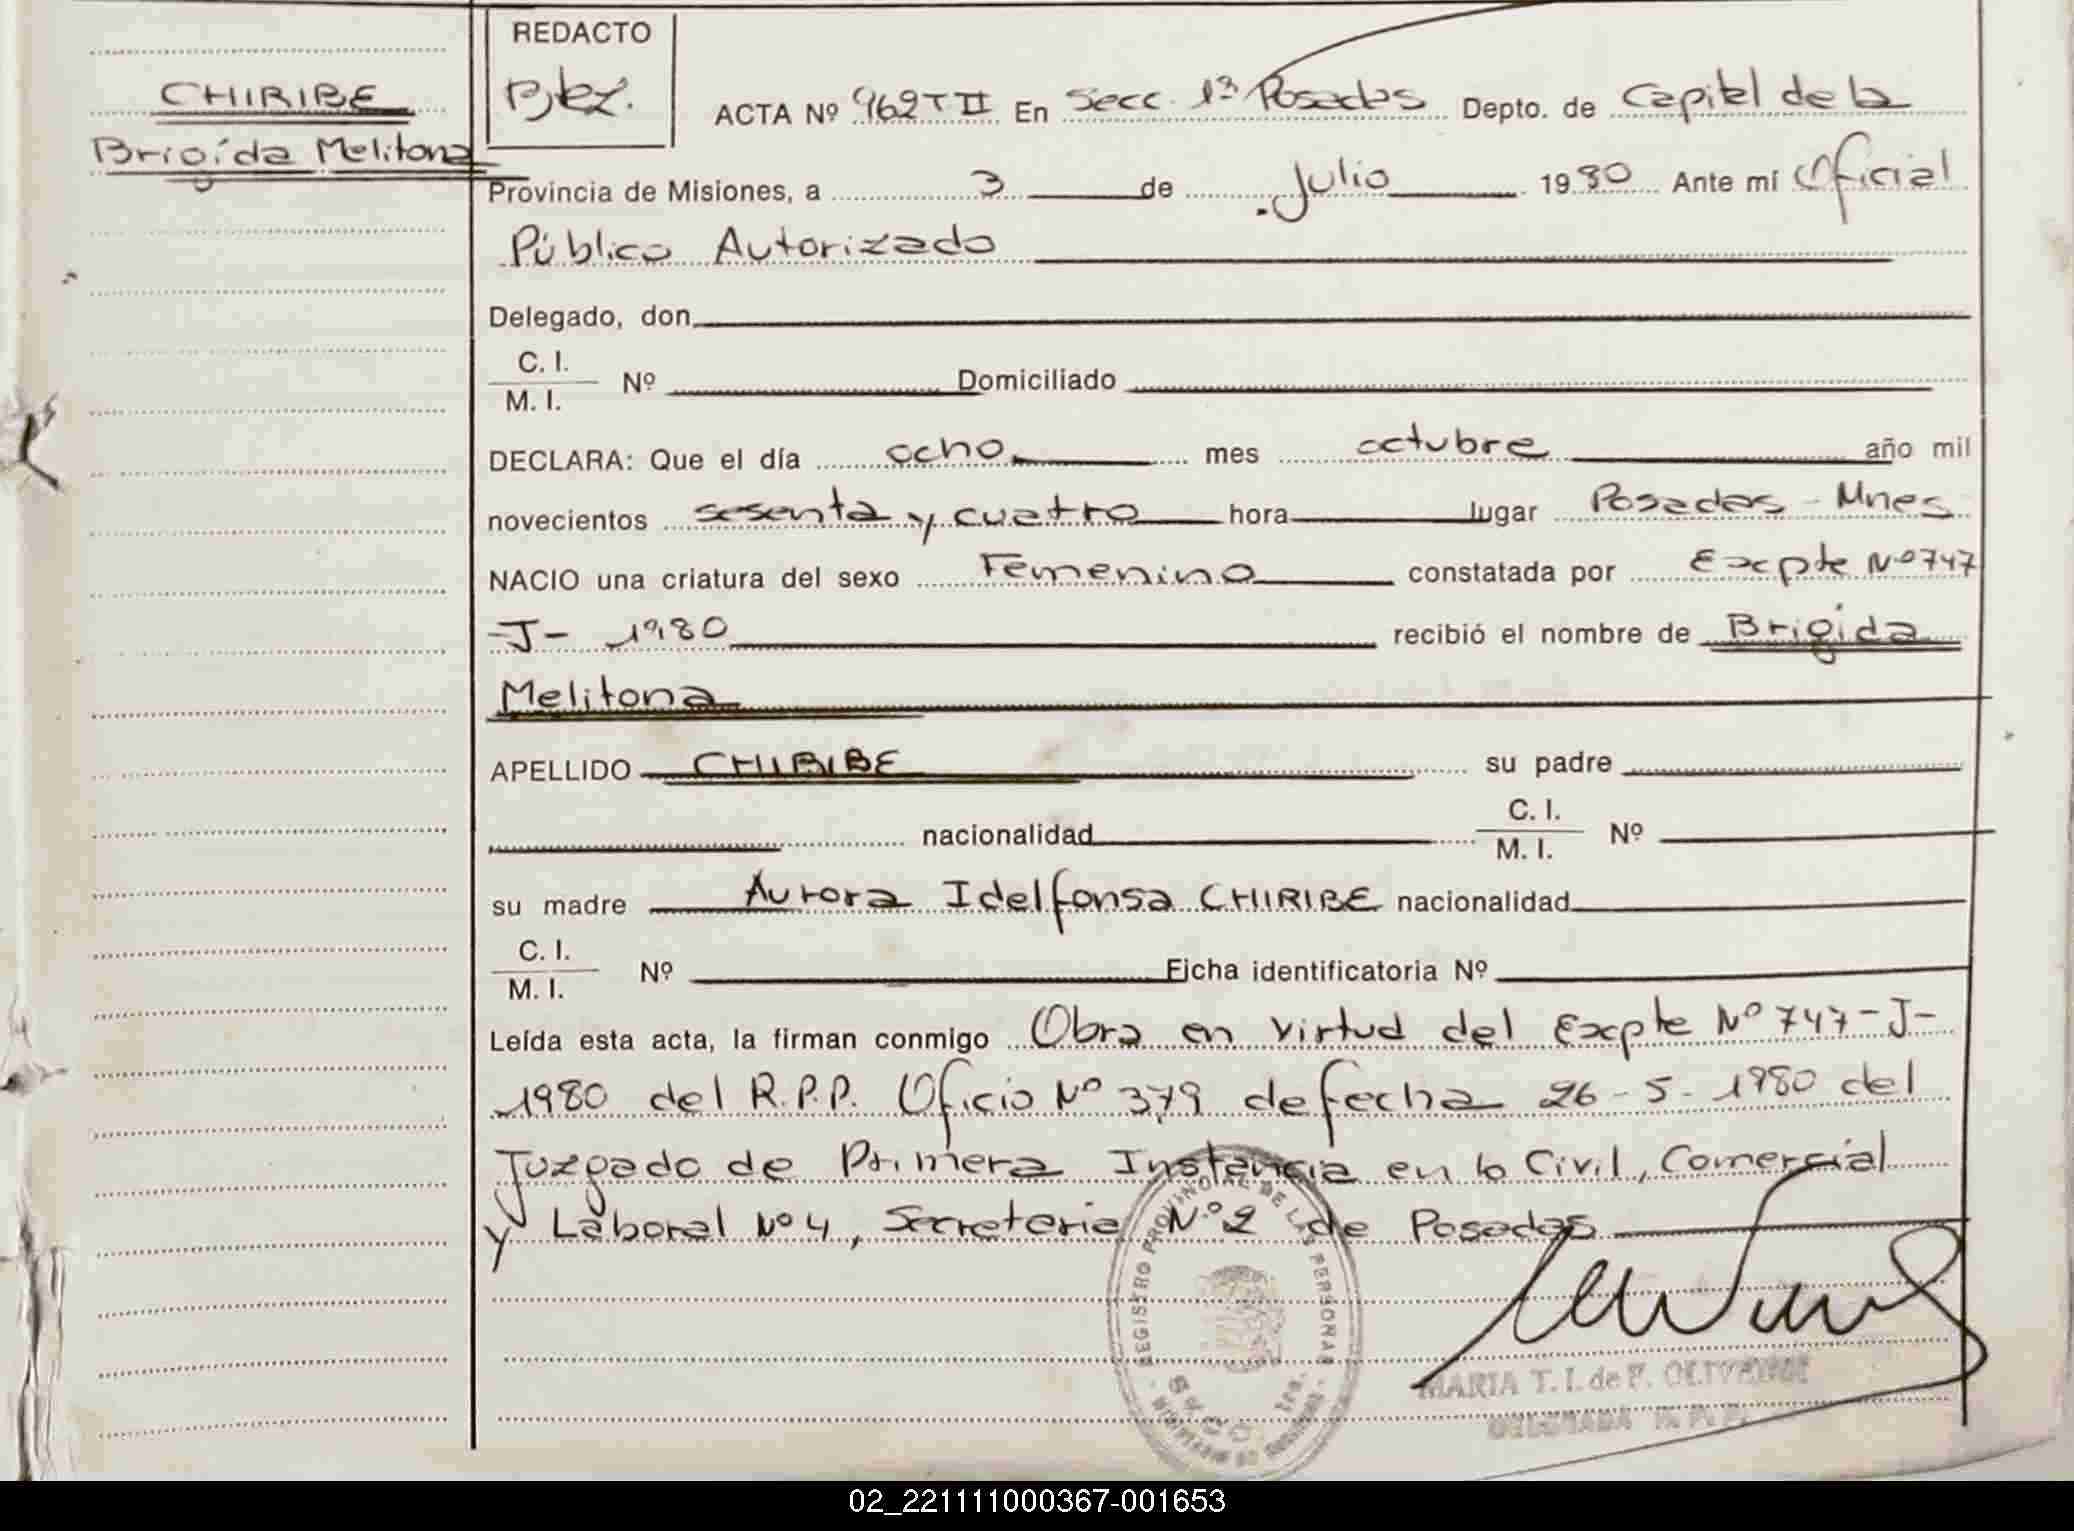 REDACTO
CHIRIBE
Brigída Melitona
ACTA Nº 962 T II En Secc. 1ª Posadas Depto. de Capital de la
Provincia de Misiones, a 3 de Julio 1980 Ante mí Oficial
Público Autorizado
Delegado, don
C. I.
M. I. Nº Domiciliado
DECLARA: Que el día ocho mes octubre año mil
novecientos sesenta y cuatro hora lugar Posadas - Mnes
NACIO una criatura del sexo Femenino constatada por Expte Nº 747
-J- 1980 recibió el nombre de Brigída
Melitona
APELLIDO CHIRIBE su padre
nacionalidad C. I.
M. I. Nº
su madre Aurora Idelfonsa CHIRIBE nacionalidad
C. I.
M. I. Nº Ficha identificatoria Nº
Leída esta acta, la firman conmigo Obra en virtud del Expte Nº 747-J-
1980 del R.P.P. Oficio Nº 379 de fecha 26-5-1980 del
Juzgado de Primera Instancia en lo Civil, Comercial
y Laboral Nº 4, Secretaria Nº 2 de Posadas
REGISTRO PROVINCIAL DE LAS PERSONAS
MARIA T. I. de F. OLIVEIRA
DELEGADA R. P. P.
02_221111000367-001653